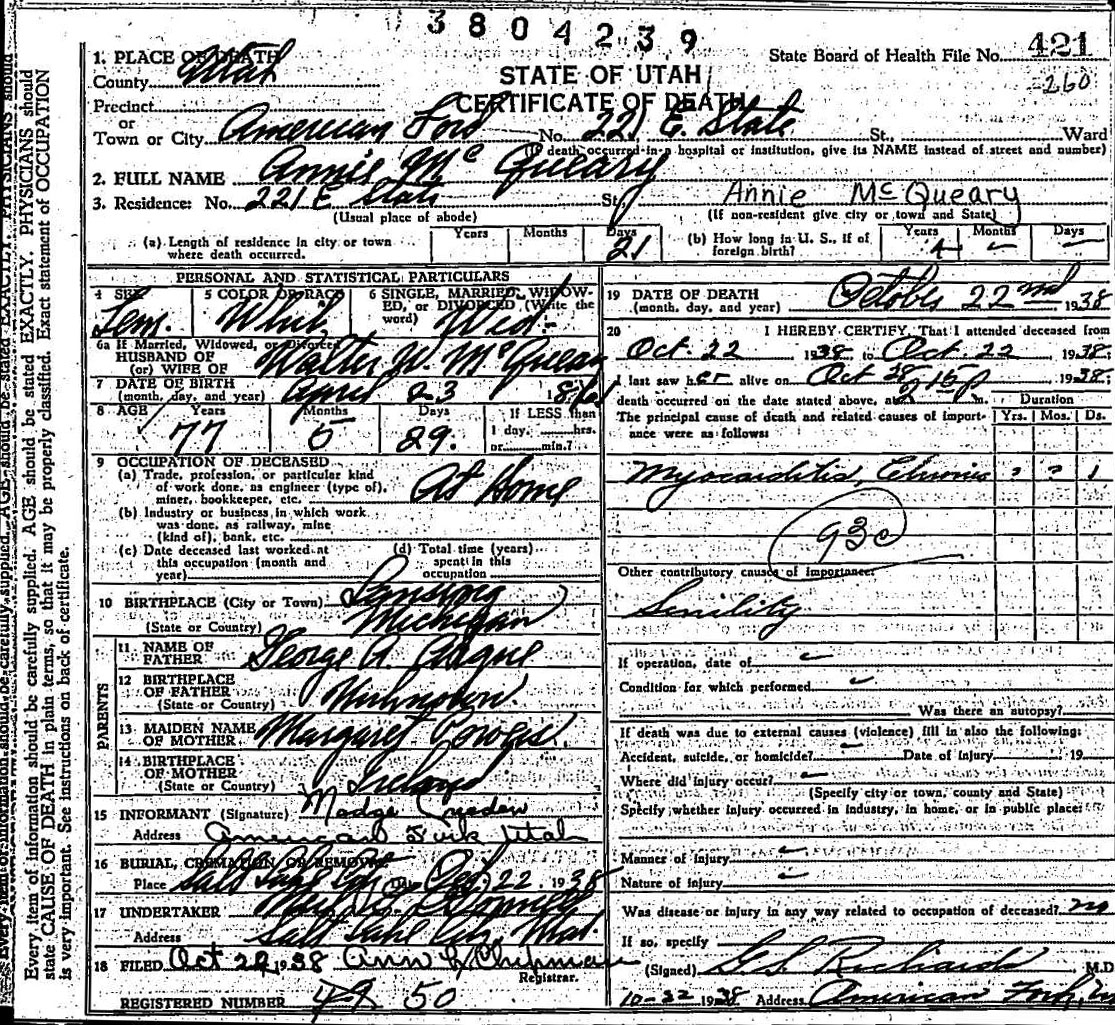 3804239
State Board of Health File No. 421
260
1. PLACE OF DEATH
County Utah
STATE OF UTAH
CERTIFICATE OF DEATH
Precinct
or
Town or City American Fork No. 221 E. State St., Ward
death occurred in a hospital or institution, give its NAME instead of street and number)
2. FULL NAME Annie Mc Queary
3. Residence: No. 221 E State St., Annie McQueary
(Usual place of abode) (If non-resident give city or town and State)
(a) Length of residence in city or town where death occurred. Years Months Days 21
(b) How long in U. S., if of foreign birth? Years Months Days
PERSONAL AND STATISTICAL PARTICULARS
4 SEX Fem.
5 COLOR OR RACE White
6 SINGLE, MARRIED, WIDOWED, or DIVORCED (Write the word) Wid.
6a If Married, Widowed, or Divorced
HUSBAND OF
(or) WIFE OF Walter W. McQueary
7 DATE OF BIRTH
(month, day, and year) April 23 1861
8 AGE Years 77 Months 5 Days 29. If LESS than 1 day, hrs. or min.?
9 OCCUPATION OF DECEASED
(a) Trade, profession, or particular kind
of work done, as engineer (type of),
miner, bookkeeper, etc. At Home
(b) Industry or business in which work
was done, as railway, mine
(kind of), bank, etc.
(c) Date deceased last worked at
this occupation (month and
year)
(d) Total time (years)
spent in this
occupation
10 BIRTHPLACE (City or Town)
(State or Country) Michigan
PARENTS
11 NAME OF
FATHER George A.
12 BIRTHPLACE
OF FATHER
(State or Country)
13 MAIDEN NAME
OF MOTHER Margaret
14 BIRTHPLACE
OF MOTHER
(State or Country) Ireland
15 INFORMANT (Signature) Madge
Address American Fork Utah
16 BURIAL, CREMATION OR REMOVAL
Place Salt Lake City Date Oct. 22 1938
17 UNDERTAKER
Address Salt Lake City, Utah.
18 FILED Oct 1938 Ann L Chipman
Registrar.
REGISTERED NUMBER 49 50
19 DATE OF DEATH
(month, day, and year) October 22nd 1938
20 I HEREBY CERTIFY, That I attended deceased from
Oct. 22 1938 to Oct. 22, 1938.
I last saw her alive on Oct 1938.
death occurred on the date stated above, at 215p m. Duration
The principal cause of death and related causes of importance were as follows: Yrs. Mos. Ds.
Myocarditis, Chronic ? ? 1
93c
Other contributory causes of importance:
Senility
If operation, date of
Condition for which performed
Was there an autopsy?
If death was due to external causes (violence) fill in also the following:
Accident, suicide, or homicide? Date of injury 19
Where did injury occur?
(Specify city or town, county and State)
Specify whether injury occurred in industry, in home, or in public place:
Manner of injury
Nature of injury
Was disease or injury in any way related to occupation of deceased? no
If so, specify
(Signed) G.S. Richards M.D
10-22 1938 Address American Fork,
Every item of information should be carefully supplied. AGE should be stated EXACTLY. PHYSICIANS should
state CAUSE OF DEATH in plain terms, so that it may be properly classified. Exact statement of OCCUPATION
is very important. See instructions on back of certificate.